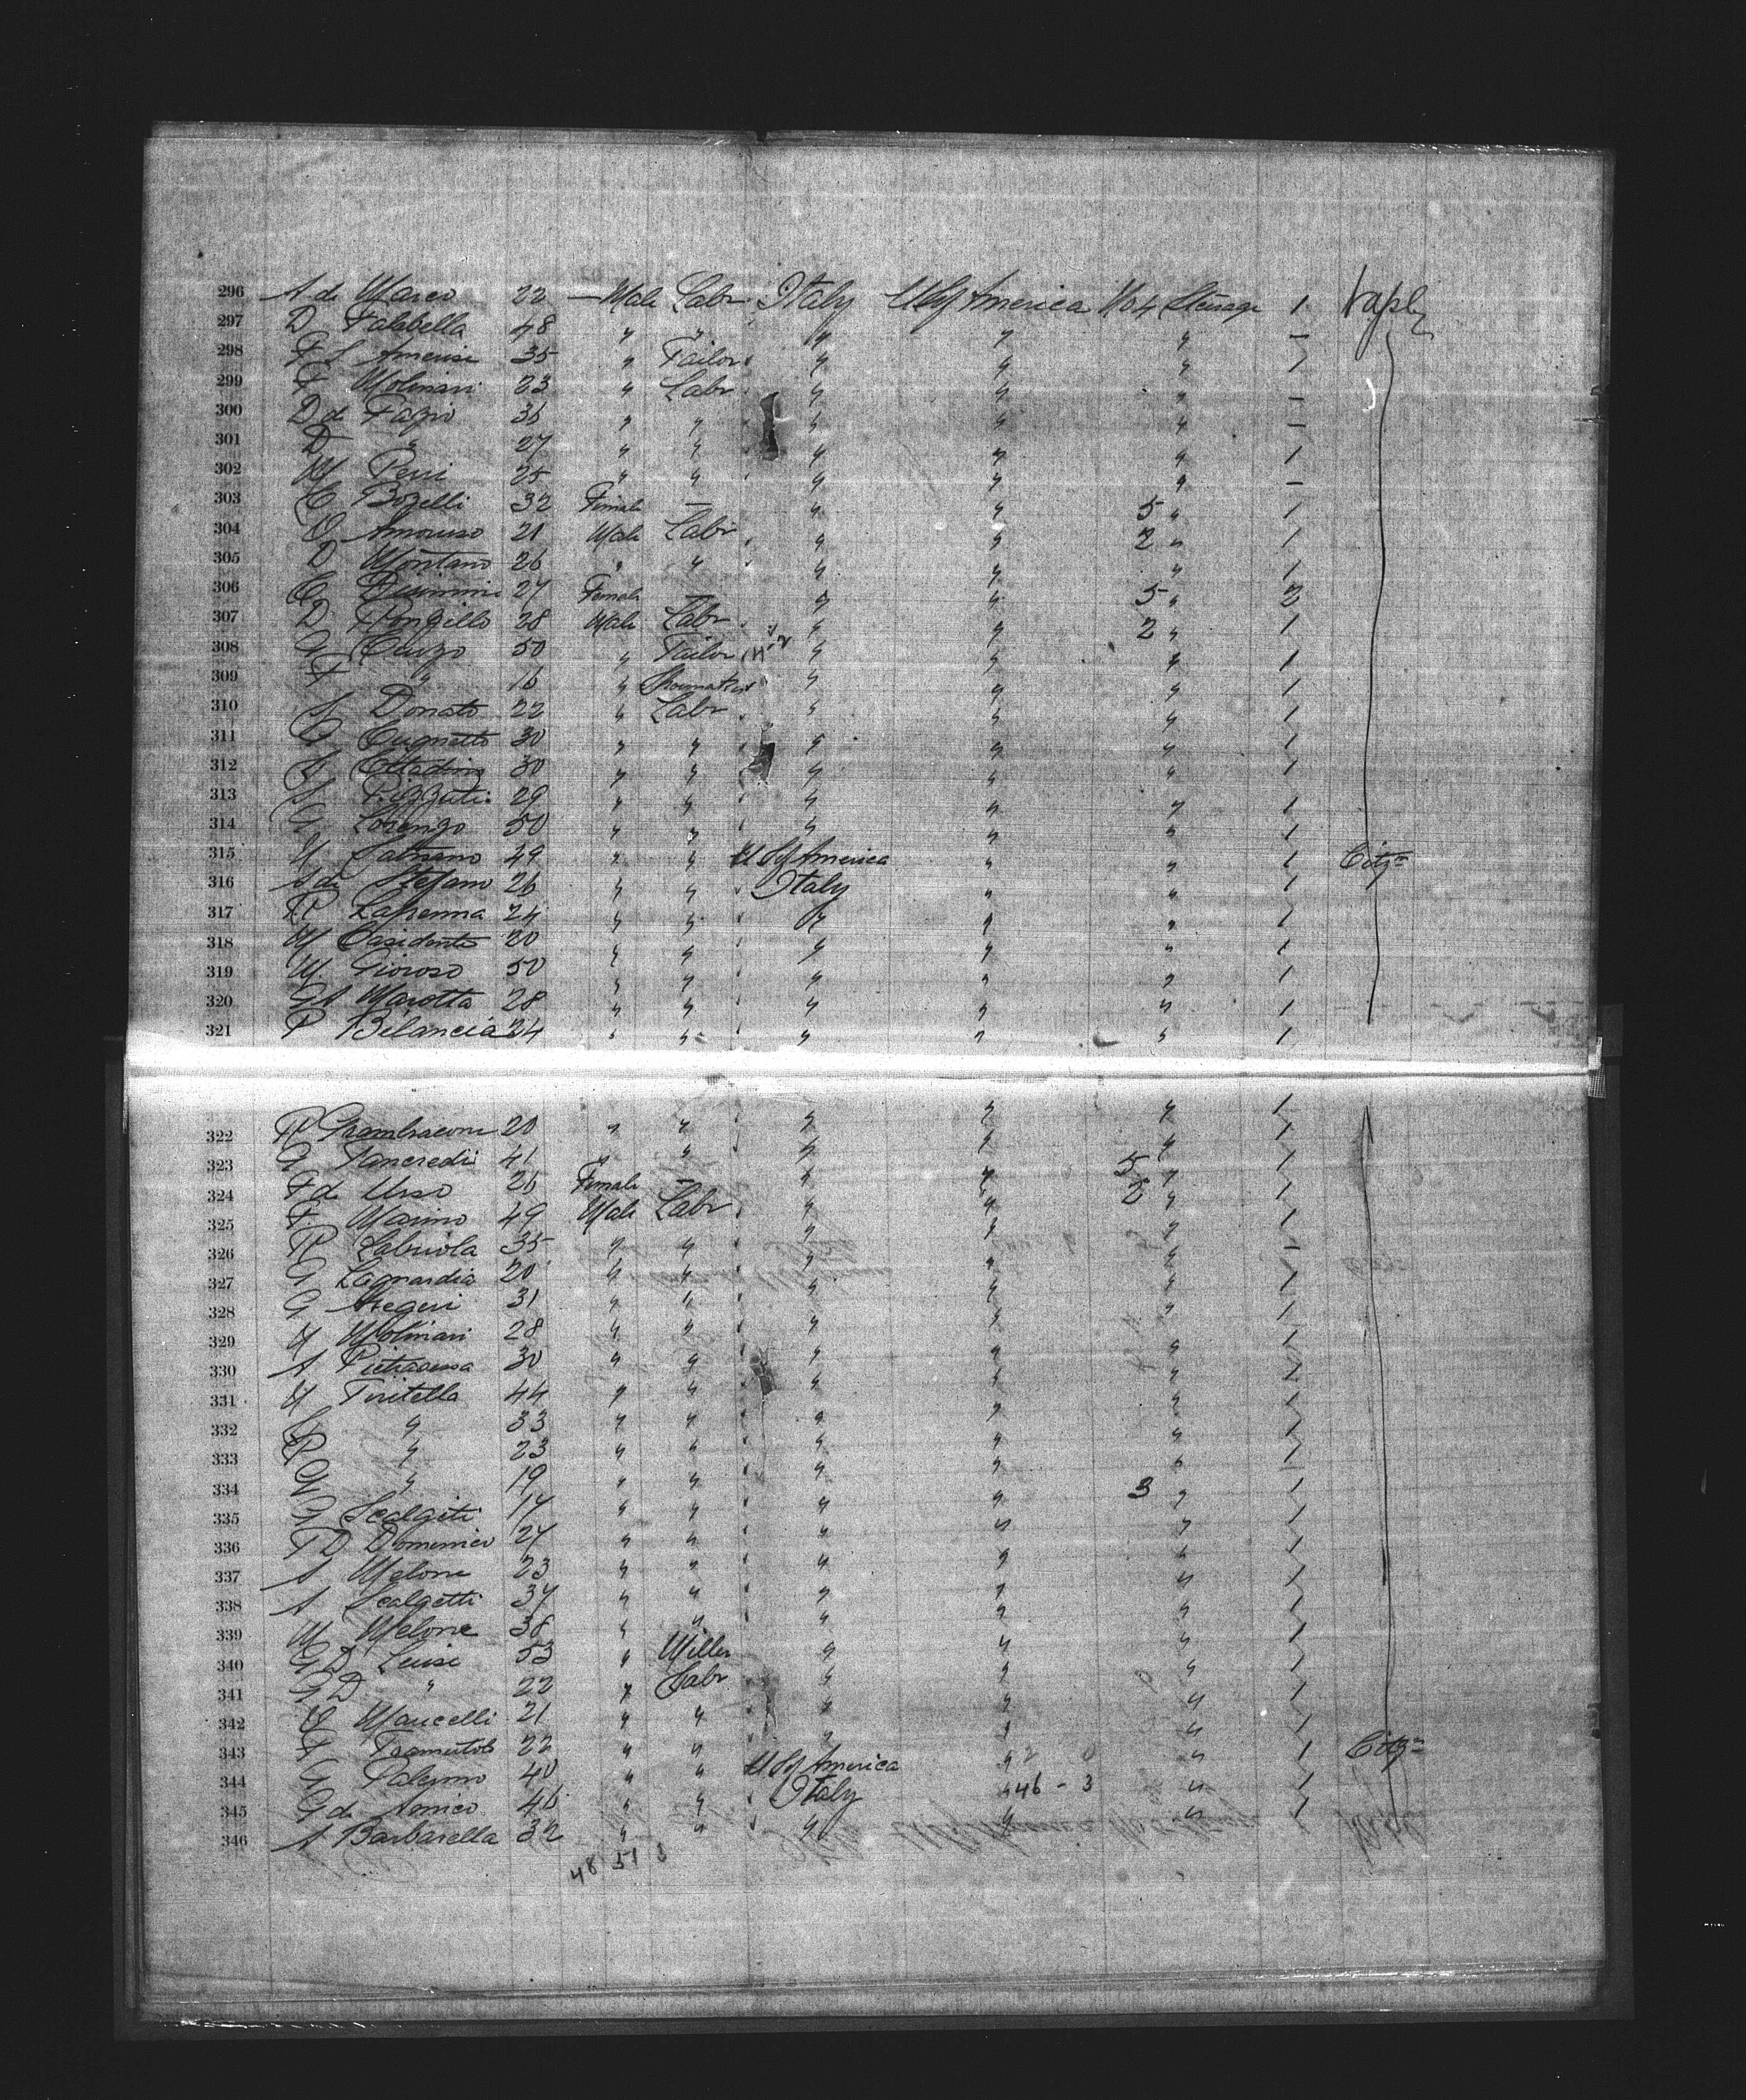 296 A. di Marco 22 — Male Labr. Italy U S of America No 4 Steerage 1 Naples
297 D Falabella 48 " " " " " —
298 F S Amerise 35 " Tailor " " " 1
299 F Molinari 23 " Labr " " " —
300 D di Fazio 36 " " " " " —
301 D " 27 " " " " " 1
302 M Perri 25 " " " " " —
303 C Bozelli 32 Female — " " 5 " 1
304 O Amoruso 21 Male Labr " " 2 " 1
305 D Montano 26 " " " " " 1
306 C 27 Female — " " 5 " 2
307 D Pongillo 28 Male Labr. " " 2 " 1
308 G Cauzo 50 " Tailor " " " 1
309 F " 16 " Shoemaker " " " 1
310 S Donato 22 " Labr " " " 1
311 G Cugnetto 30 " " " " " 1
312 S Cittadino 30 " " " " " 1
313 S Pizzuti 29 " " " " " 1
314 G Lorenzo 50 " " " " " 1
315 M Sabriano 49 " " U S of America " " 1 Citzn
316 A di Stefano 26 " " Italy " " 1
317 R Lapenna 24 " " " " " 1
318 M Casidento 20 " " " " " 1
319 M. Gioroso 50 " " " " " 1
320 G A Marotta 28 " " " " " 1
321 P Bilancia 24 " " " " " 1
322 R 20 " " " " " 1
323 G Tancredi 41 " " " " " 1
324 F di Urso 26 Female — " " 5 " 1
325 F Marino 49 Male Labr. " " 2 " 1
326 R Labriola 35 " " " " " 1
327 G Laguardia 20 " " " " " —
328 G 31 " " " " " 1
329 M Molinari 28 " " " " " 1
330 A 30 " " " " " 1
331 M Tiritella 44 " " " " " 1
332 S " 33 " " " " " 1
333 R " 23 " " " " " 1
334 G " 19 " " " " " 1
335 G Scalgiti 17 " " " " 3 " 1
336 T D Domenico 27 " " " " " 1
337 A Melone 23 " " " " " 1
338 A Scalgetti 37 " " " " " 1
339 M Melone 38 " " " " " 1
340 G D Luise 53 " Miller " " " 1
341 G D " 22 " Labr " " " 1
342 V Maucelli 21 " " " " " 1
343 F Tramutolo 22 " " " " " 1
344 G Palermo 40 " " U S of America " " 1 Citzn
345 G di Amico 46 " " Italy " " 1
346 A Barbarella 32 " " " " " 1
446 - 3
48 51 3